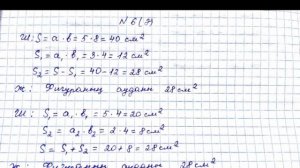 N 6 (Э)
Ш: S = a · b = 5 · 8 = 40 см²
S₁ = a₁ · b₁ = 3 · 4 = 12 см²
S₂ = S - S₁ = 40 - 12 = 28 см²
Ж: Фигураның ауданы 28 см²
Ш: S₁ = a₁ · b₁ = 5 · 4 = 20 см²
S₂ = a₂ · b₂ = 2 · 4 = 8 см²
S = S₁ + S₂ = 20 + 8 = 28 см²
Ж: Фигураның ауданы 28 см²